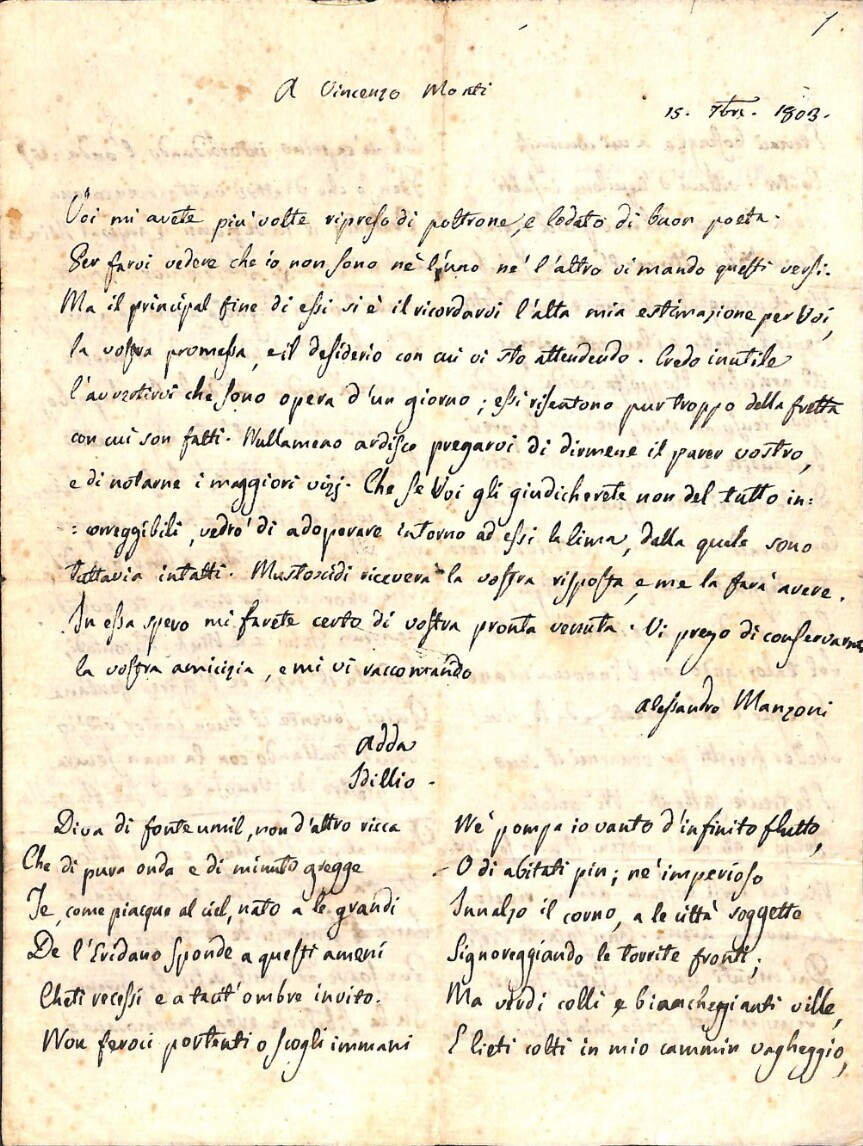 1.
A Vincenzo Monti
15. 7bre. 1803.
Voi mi avete più volte ripreso di poltrone, e lodato di buon poeta.
Per farvi vedere che io non sono nè l'uno ne' l'altro vi mando questi versi.
Ma il principal fine di essi si è il ricordarvi l'alta mia estimazione per Voi,
la vostra promessa, e il desiderio con cui vi sto attendendo. Credo inutile
l'avvertirvi che sono opera d'un giorno; essi risentono pur troppo della fretta
con cui son fatti. Nullameno ardisco pregarvi di dirmene il parer vostro,
e di notarne i maggiori vizj. Che se Voi gli giudicherete non del tutto in:
:correggibili, vedrò di adoperare intorno ad essi la lima, dalla quale sono
tuttavia intatti. Mustoxidi riceverà la vostra risposta, e me la farà avere.
In essa spero mi farete certo di vostra pronta venuta. Vi prego di conservarmi
la vostra amicizia, e mi vi raccomando
Alessandro Manzoni
Adda
Idillio.
Diva di fonte umil, non d'altro ricca
Che di pura onda e di minuto gregge
Te, come piacque al ciel, nato a le grandi
De l'Eridano sponde a questi ameni
Cheti recessi e a tacit'ombre invito.
Non feroci portenti o scogli immani
Ne' pompa io vanto d'infinito flutto,
O di abitati pin; ne' imperioso
Innalzo il corno, a le città soggetto
Signoreggiando le torrite fronti;
Ma verdi colli e biancheggianti ville,
E lieti colti in mio cammin vagheggio,